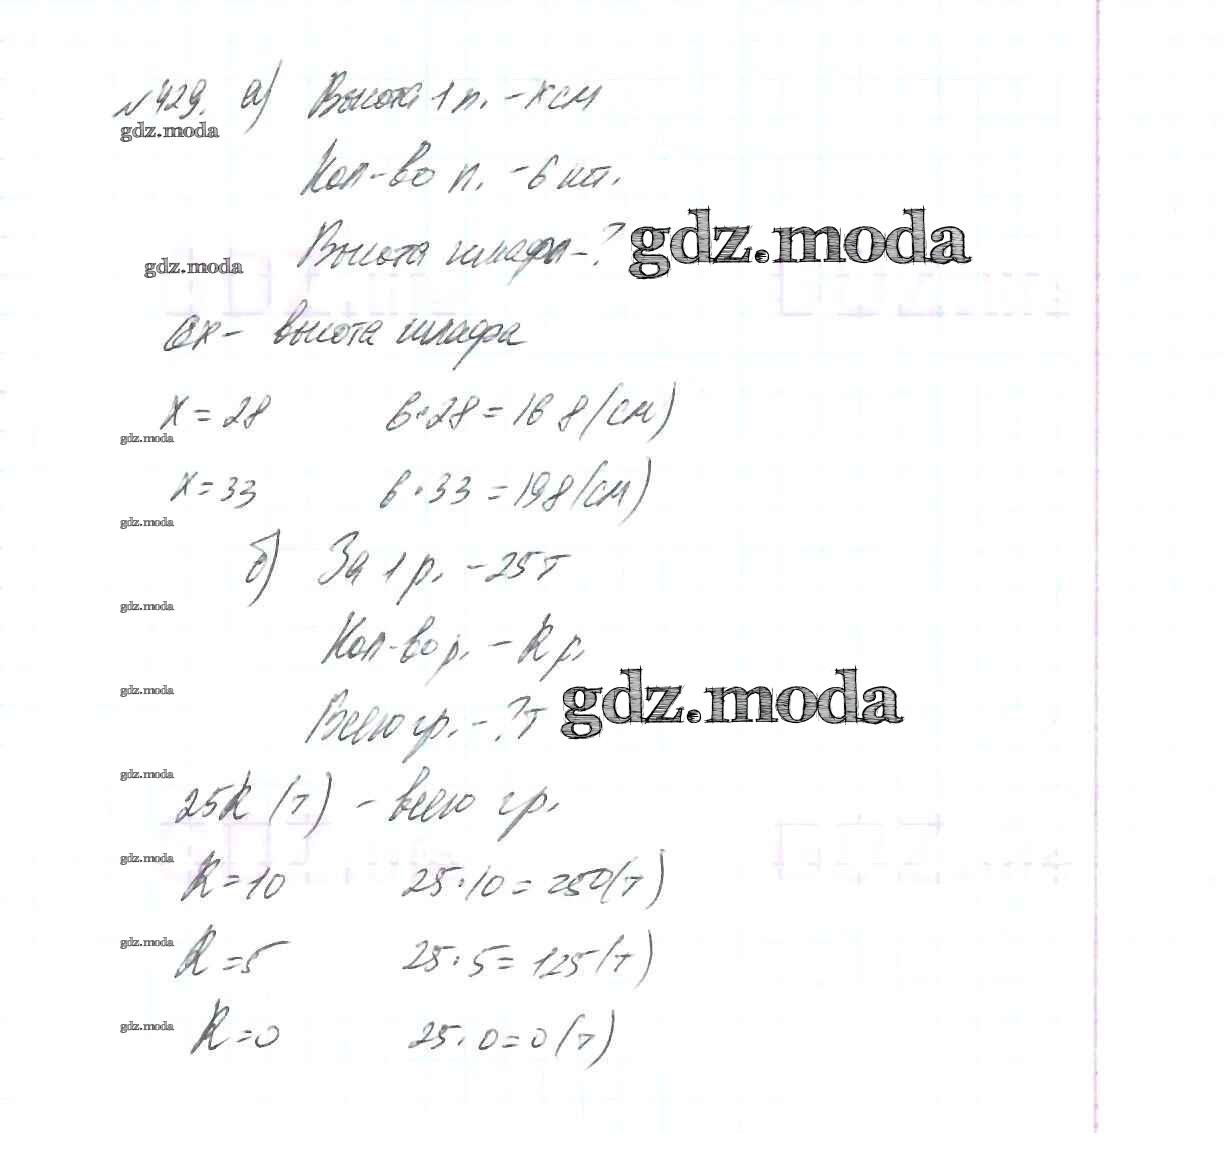 №429. а) Высота 1 п. - х см
gdz.moda
Кол-во п. - 6 шт.
Высота шкафа - ? gdz.moda
gdz.moda
6х - высота шкафа
х = 28 6·28 = 168 (см)
gdz.moda
х = 33 6·33 = 198 (см)
gdz.moda
б) За 1 р. - 25 т
gdz.moda
Кол-во р. - k р.
gdz.moda
Всего гр. - ? т gdz.moda
gdz.moda
25k (т) - всего гр.
gdz.moda
k = 10 25·10 = 250 (т)
gdz.moda
k = 5 25·5 = 125 (т)
gdz.moda
k = 0 25·0 = 0 (т)